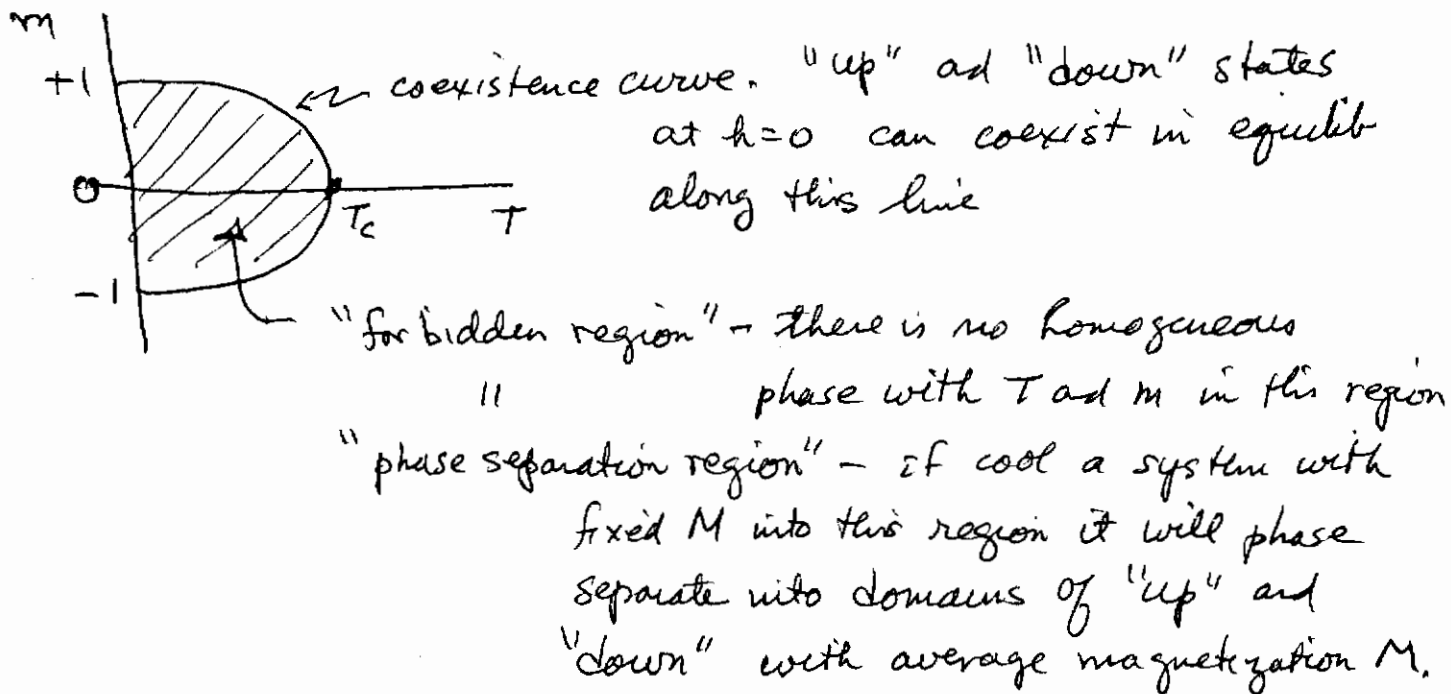 m
+1
coexistence curve. "up" ad "down" states
at h=0 can coexist in equilib
along this line
0
Tc
T
-1
"forbidden region" - there is no homogeneous
"
phase with T ad m in this region
"phase separation region" - if cool a system with
fixed M into this region it will phase
separate into domains of "up" and
"down" with average magnetization M.